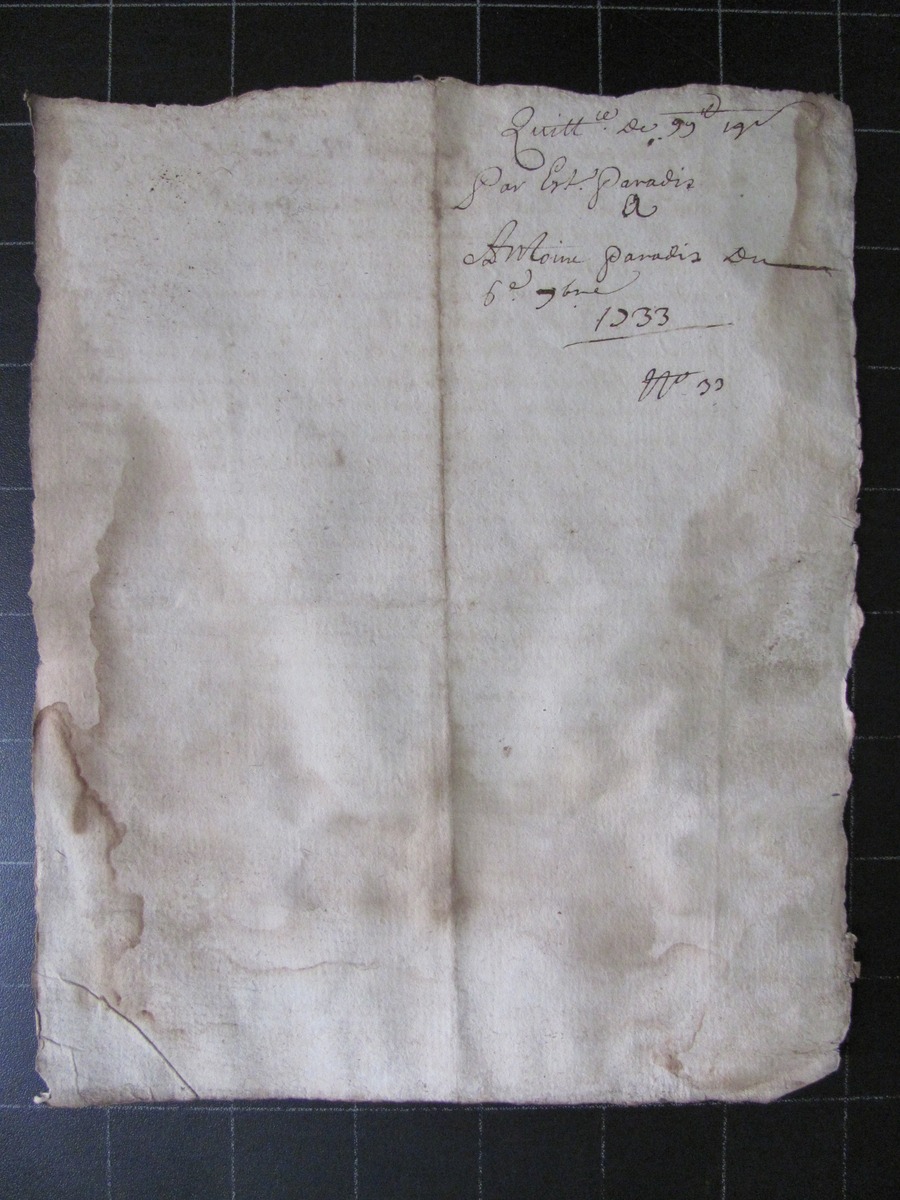 Quitt.ce de 99tt 19s
Par Est. Paradis
A
Antoine Paradis Du
6e 9bre
1733
No 33